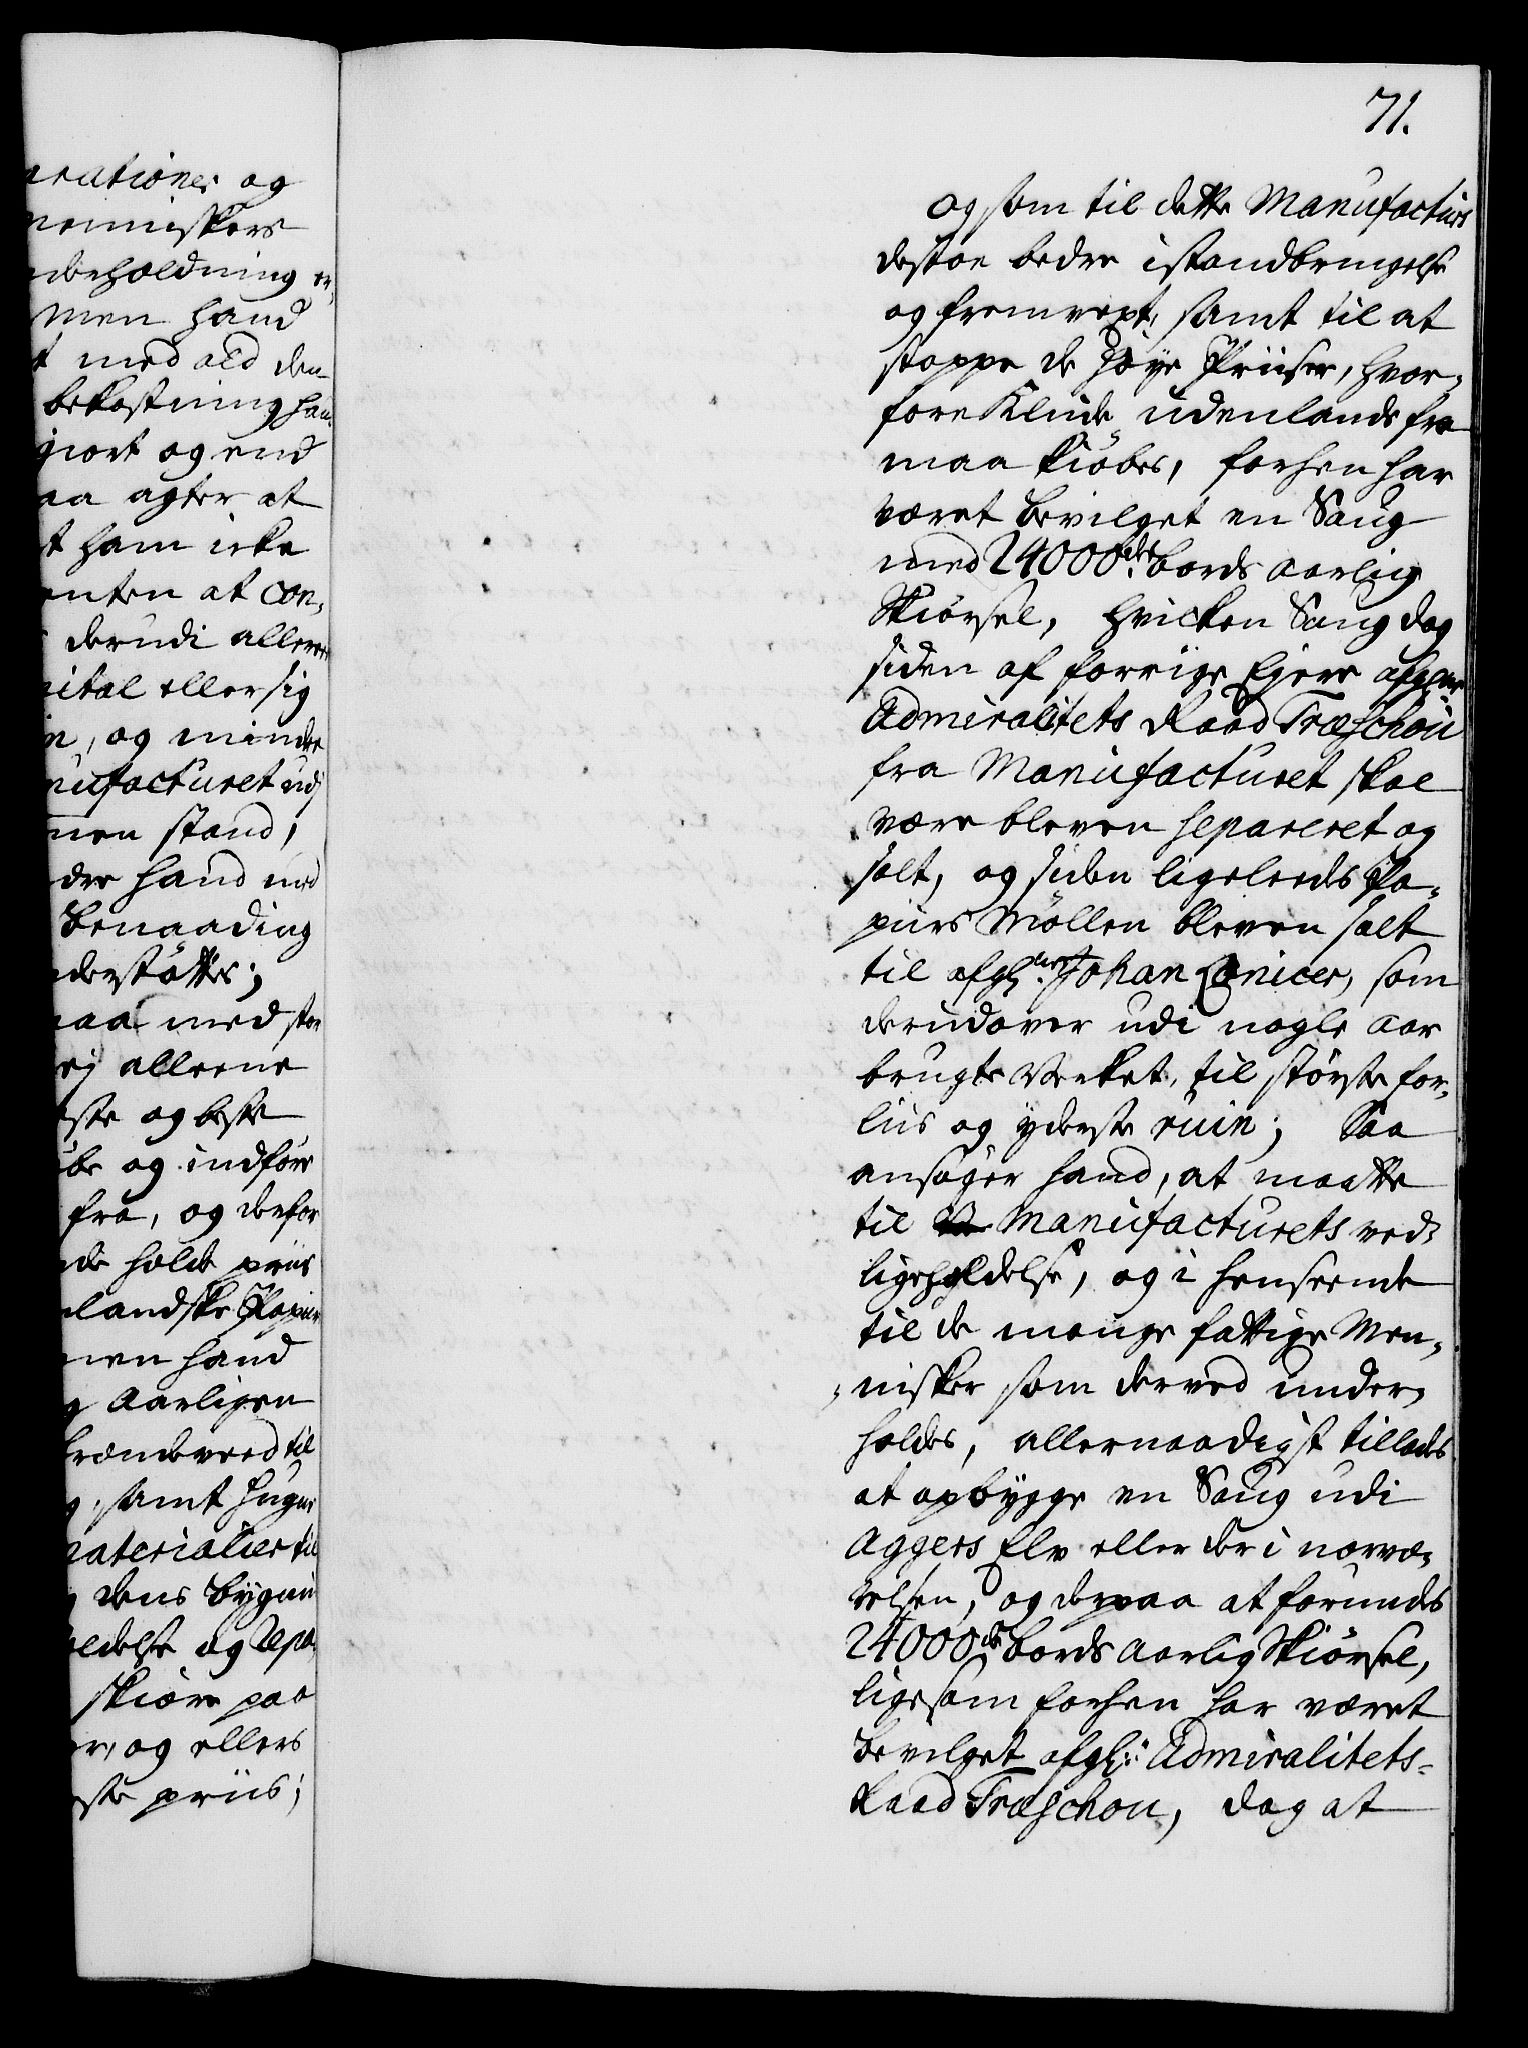 71.
arationer og
menniskers
nderholdning er,
Men hand
t med ald den
bekostning han
giort og end
aa agter at
t ham icke
enten at con-
derudi allerede
pital eller sig
n, og mindre
nufacturet udi
men stand,
dre hand med
Benaading
nderstøttes;
aa med stor
ej alleene
ste og beste
øbe og indføre
fra, og derfor
de holde priis
nlandske Papiir
men hand
g Aarligen
brændeveed til
g, samt huger
materialier til
dens bygni
eldelse og Repa
skiære paa
er, og ellers
ste priis;
og som til dette Manufacturs
destoe bedre istandbringelse
og fremvext, samt til at
stoppe de høye Priiser, hvor-
fore Klude udenlands fra
maa kiøbes, forhen har
været bevilget en Saug
med 24000de bords aarlig
Skiørsel, hvilcken Saug dog
siden af forrige Ejere afgl:ne
Admiralitets Raad Træschou
fra Manufacturet skal
være bleven separeret og
solt, og siden ligeleeds Pa-
piirs Møllen bleven solt
til afgl: Johan Conicer, som
derudover udi nogle aar
brugte Verket, til største for-
liis og yderste ruin; Saa
ansøger hand, at maatte
til Manufacturets ved-
ligeholdelse, og i henseende
til de mange fattige Men-
nisker som derved under-
holdes, allernaadigst tillades
at opbygge en Saug udi
Aggers Elv eller der i nærvæ-
relsen, og derpaa at forundes
24000de bords aarlig Skiørsel,
ligesom forhen har været
bevilget afgl: Admiralitets-
Raad Træschou, dog at